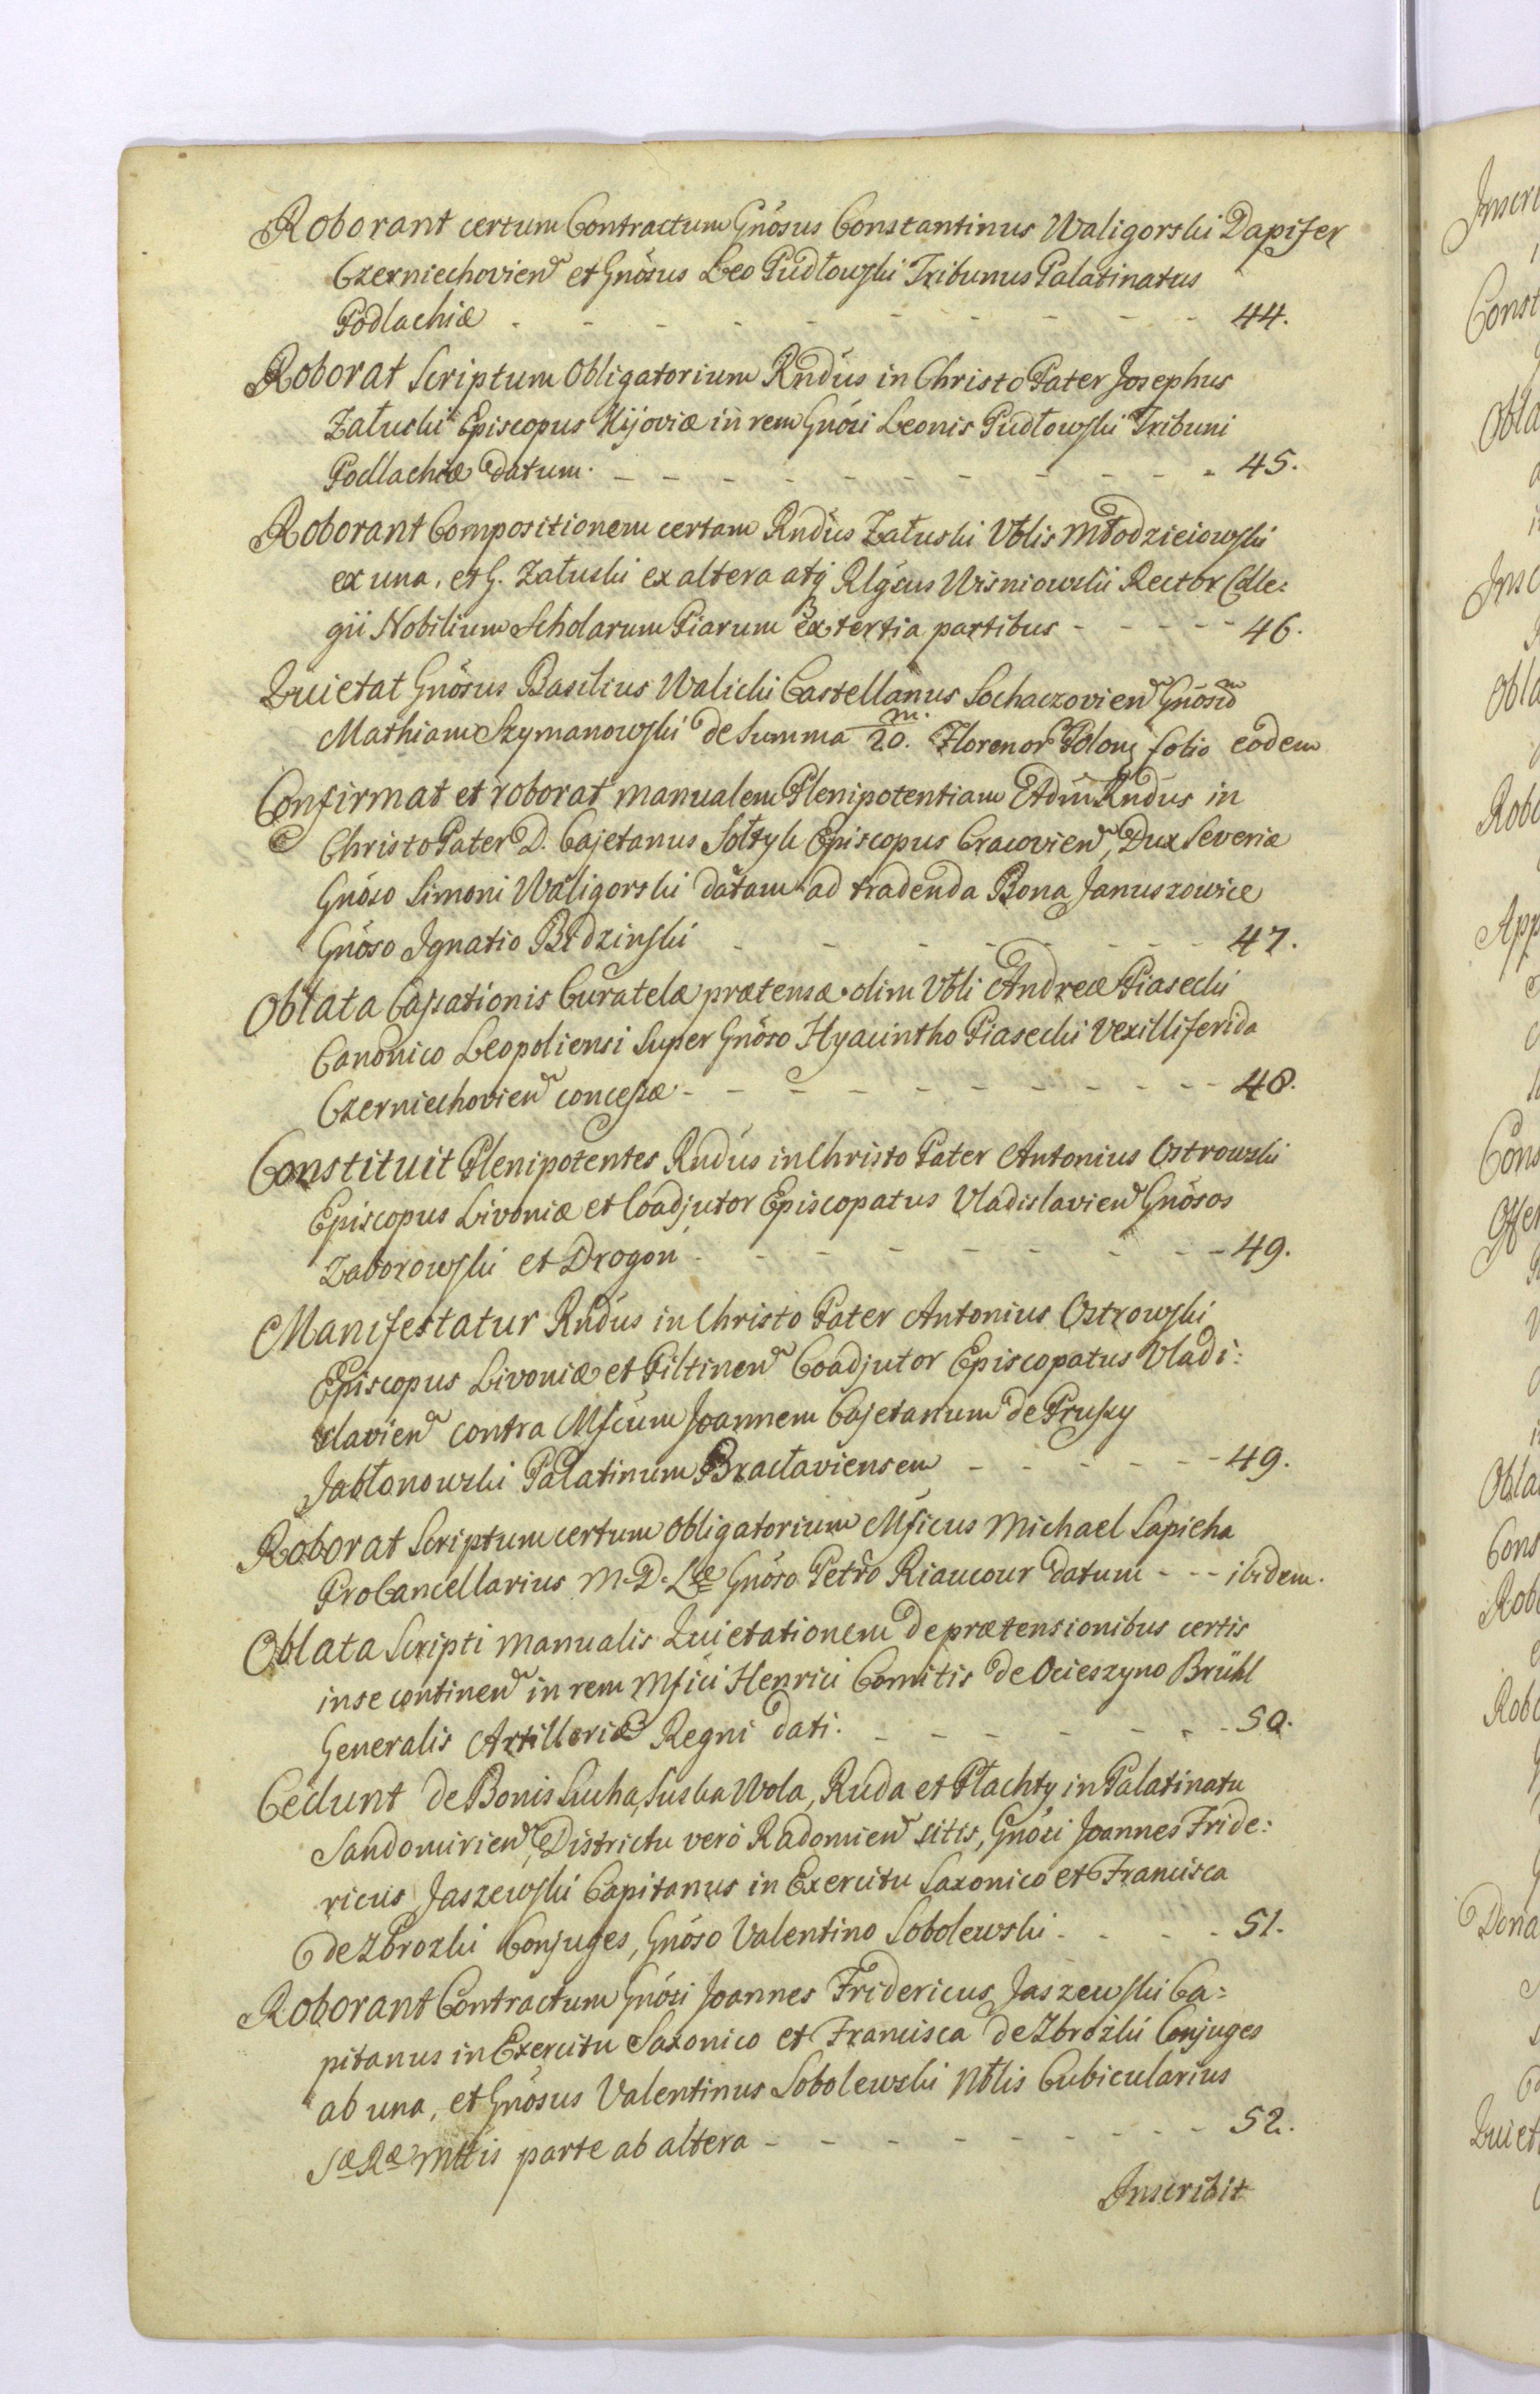 Roborant certum Contractum Gnõsus Constantinus Waligorski Dapifer
Czerniechovien͠ et Gnõsus Leo Pudłowski Tribunus Palatinatus
Podlachiæ - - - - - - - - - - 44.
Roborat Scriptum Obligatorium Rndũs in Christo Pater Josephus
Załuski Episcopus Kijoviæ in rem Gnõsi Leonis Pudłowski Tribuni
Podlachiæ datum. - - - - - - - - - - 45.
Roborant Compositionem certam Rndũs Załuski Vblis Młodzieiowski
ex una, et G. Załuski ex altera atq̃ Rlgs̃us Wisniowski Rector Colle:
gii Nobilium Scholarum Piarum ex tertia partibus - - - - - 46.
Quietat Gnõsus Basilius Walicki Castellanus Sochaczovien͠ Gnõsũm
Mathiam Szymanowski de Summa 20.m. Florenor Polon folio eodem
Confirmat et roborat manualem Plenipotentiam Rndũs in
Christo Pater D. Cajetanus Sołtyk Episcopus Cracovien͠, Dux Severiæ
Gnõso Simoni Waligorski datam ad tradenda Bona Januszowice
Gnõso Ignatio Bidzinski - - - - - - - 47.
Oblata Cassationis Curatelæ prætensæ olim Vbli Andreæ Piasecki
Canonico Leopoliensi Super Gnõso Hyacintho Piasecki Vexilliferida
Czerniechovien͠ concessæ - - - - - - - - - 48.
Constituit Plenipotentes Rndũs in Christo Pater Antonius Ostrowski
Episcopus Livoniæ et Coadjutor Episcopatus Vladislavien͠ Gnõsos
Zaborowski et Drogoń - - - - - - - - 49.
Manifestatur Rndũs in Christo Pater Antonius Ostrowski
Episcopus Livoniæ et Piltinen͠ Coadjutor Episcopatus Vladi:
slavien͠ contra Mfcũm Joannem Cajetanum de Prussy
Jabłonowski Palatinum Bracłaviensem - - - - - - 49.
Roborat Scriptum certum obligatorium Mficus Michael Sapieha
ProCancellarius M. D. Læ Gnõso Petro Riaucour datum - - - ibidem.
Oblata Scripti manualis Quietationem de prætensionibus certis
in se continen͠ in rem Mfici Henrici Comitis de Ocieszyno Brühl
Generalis Artilleriæ Regni dati. - - - - - - - 50.
Cedunt de Bonis Sucha, Suska Wola, Ruda et Płachty in Palatinatu
Sandomirien͠, Districtu verò Radomien͠ sitis, Gnõsi Joannes Fride:
ricus Jaszewski Capitanus in Exercitu Saxonico et Francisca
de Zbrozki Conjuges, Gnõso Valentino Sobolewski - - - - 51.
Roborant Contractum Gnõsi Joannes Fridericus Jaszewski Ca:
pitanus in Exercitu Saxonico et Francisca de Zbrożki Conjuges
ab una, et Gnõsus Valentinus Sobolewski Nblis Cubicularius
Sæ Ræ Mttis parte ab altera - - - - - - - - 52.
Inscribit